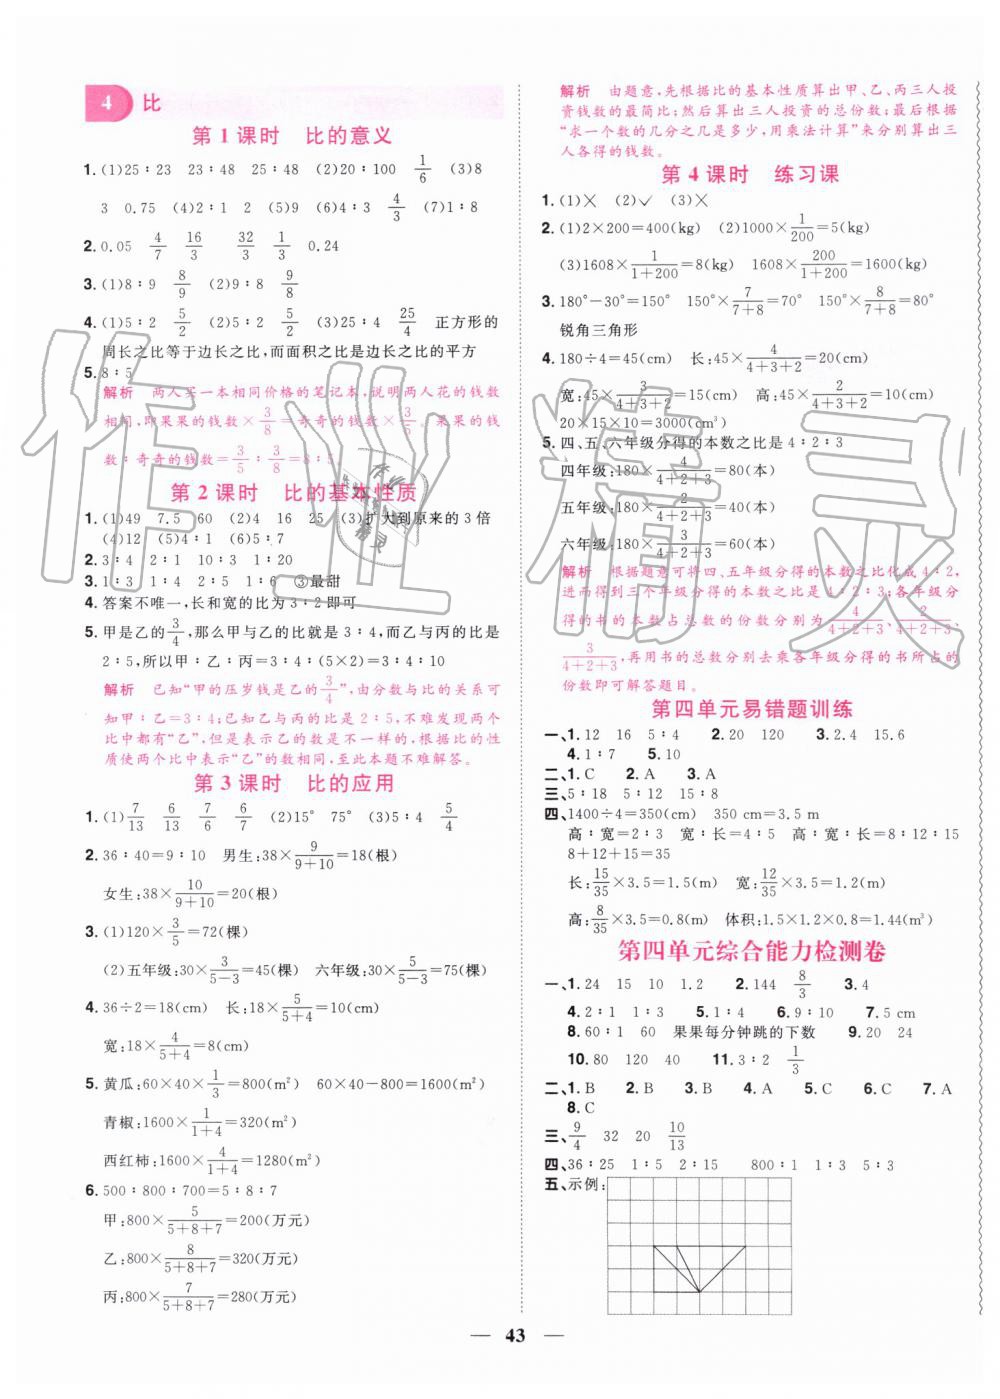 4 比
第 1 课时 比的意义
1. (1)25∶23 23∶48 25∶48 (2)20∶100 1/6 (3)8
3 0.75 (4)2∶1 2 (5)9 (6)3∶4 4/3 (7)1∶8
2. 0.05 4/7 16/3 32/3 1/3 0.24
3. (1)8∶9 8/9 (2)9∶8 9/8
4. (1)5∶2 5/2 (2)5∶2 5/2 (3)25∶4 25/4 正方形的
周长之比等于边长之比,而面积之比为边长之比的平方
5. 8∶5
解析 两人买一本相同价格的笔记本,说明两人花的钱数
相同,即果果的钱数×3/8=奇奇的钱数×3/5。果果的钱
数∶奇奇的钱数=3/5∶3/8=8∶5
第 2 课时 比的基本性质
1. (1)49 7.5 60 (2)4 16 25 (3)扩大到原来的 3 倍
(4)12 (5)4 (6)5∶7
2. 3∶4 2∶1 10∶3 1∶20
3. 1∶3 1∶4 1∶5 1∶6 ③最甜
4. 答案不唯一,长和宽的比为 3∶2 即可
5. 甲是乙的3/4,那么甲与乙的比就是 3∶4;而乙与丙的比是
2∶5,所以甲∶乙∶丙=3∶4∶(5×2)=3∶4∶10
解析 已知“甲的压岁钱是乙的3/4”,由分数与比的关系可
知甲∶乙=3∶4;已知乙与丙的比是 2∶5,不难发现两个
比中都有“乙”,但是表示乙的数是不一样的,根据比的性
质使两个比中表示“乙”的数相同,至此本题不难解答。
第 3 课时 比的应用
1. (1)7/13 6/13 7/6 6/7 (2)15° 75° (3)5∶4 5/4
2. 36∶40=9∶10 男生:38×9/(9+10)=18(根)
女生:38×10/(9+10)=20(根)
3. (1)120×3/5=72(棵)
(2)五年级:30×3/(5-3)=45(棵) 六年级:30×5/(5-3)=75(棵)
4. 36÷2=18(cm) 长:18×5/(5+4)=10(cm)
宽:18×4/(5+4)=8(cm)
5. 黄瓜:60×40×1/3=800(m²) 60×40-800=1600(m²)
青椒:1600×1/(1+4)=320(m²)
西红柿:1600×4/(1+4)=1280(m²)
6. 500∶800∶700=5∶8∶7
甲:800×5/(5+8+7)=200(万元)
乙:800×8/(5+8+7)=320(万元)
丙:800×7/(5+8+7)=280(万元)
解析 由题意,先根据比的基本性质算出甲、乙、丙三人投
资钱数的最简比;然后算出三人投资的总份数;最后根据
“求一个数的几分之几是多少,用乘法计算”来分别算出三
人各得的钱数。
第 4 课时 练习课
1. (1)× (2)√ (3)×
2. (1)2×200=400(kg) (2)1000×1/200=5(kg)
(3)1608×1/(1+200)=8(kg) 1608×200/(1+200)=1600(kg)
3. 180°-30°=150° 150°×7/(7+8)=70° 150°×8/(7+8)=80°
锐角三角形
4. 180÷4=45(cm) 长:45×4/(4+3+2)=20(cm)
宽:45×3/(4+3+2)=15(cm) 高:45×2/(4+3+2)=10(cm)
20×15×10=3000(cm³)
5. 四、五、六年级分得的本数之比是 4∶2∶3
四年级:180×4/(4+2+3)=80(本)
五年级:180×2/(4+2+3)=40(本)
六年级:180×3/(4+2+3)=60(本)
解析 根据题意可将四、五年级分得的本数之比化成 4∶2,
进而得到三个年级分得的本数之比是 4∶2∶3;各年级分
得的书的本数占总数的份数分别为4/(4+2+3)、2/(4+2+3)、
3/(4+2+3),再用书的总数分别去乘各年级分得的书所占的
份数即可解答题目。
第四单元易错题训练
一、1. 12 16 5∶4 2. 20 120 3. 2.4 15.6
4. 1∶7 5. 10
二、1. C 2. A 3. A
三、5∶18 5∶12 15∶8
四、1400÷4=350(cm) 350 cm=3.5 m
高∶宽=2∶3 宽∶长=4∶5 高∶宽∶长=8∶12∶15
8+12+15=35
长:15/35×3.5=1.5(m) 宽:12/35×3.5=1.2(m)
高:8/35×3.5=0.8(m) 体积:1.5×1.2×0.8=1.44(m³)
第四单元综合能力检测卷
一、1. 24 15 10 1.2 2. 144 8/3 3. 4
4. 2∶1 1∶3 5. 1∶4 6. 9∶10 7. 5 cm
8. 60∶1 60 果果每分钟跳的下数 9. 20 24
10. 80 120 40 11. 3∶2 1/3
二、1. B 2. B 3. B 4. A 5. C 6. C 7. A
8. C
三、9/4 32 20 10/13
四、36∶25 1∶5 2∶15 800∶1 1∶3 5∶3
五、示例:
43
作业精灵